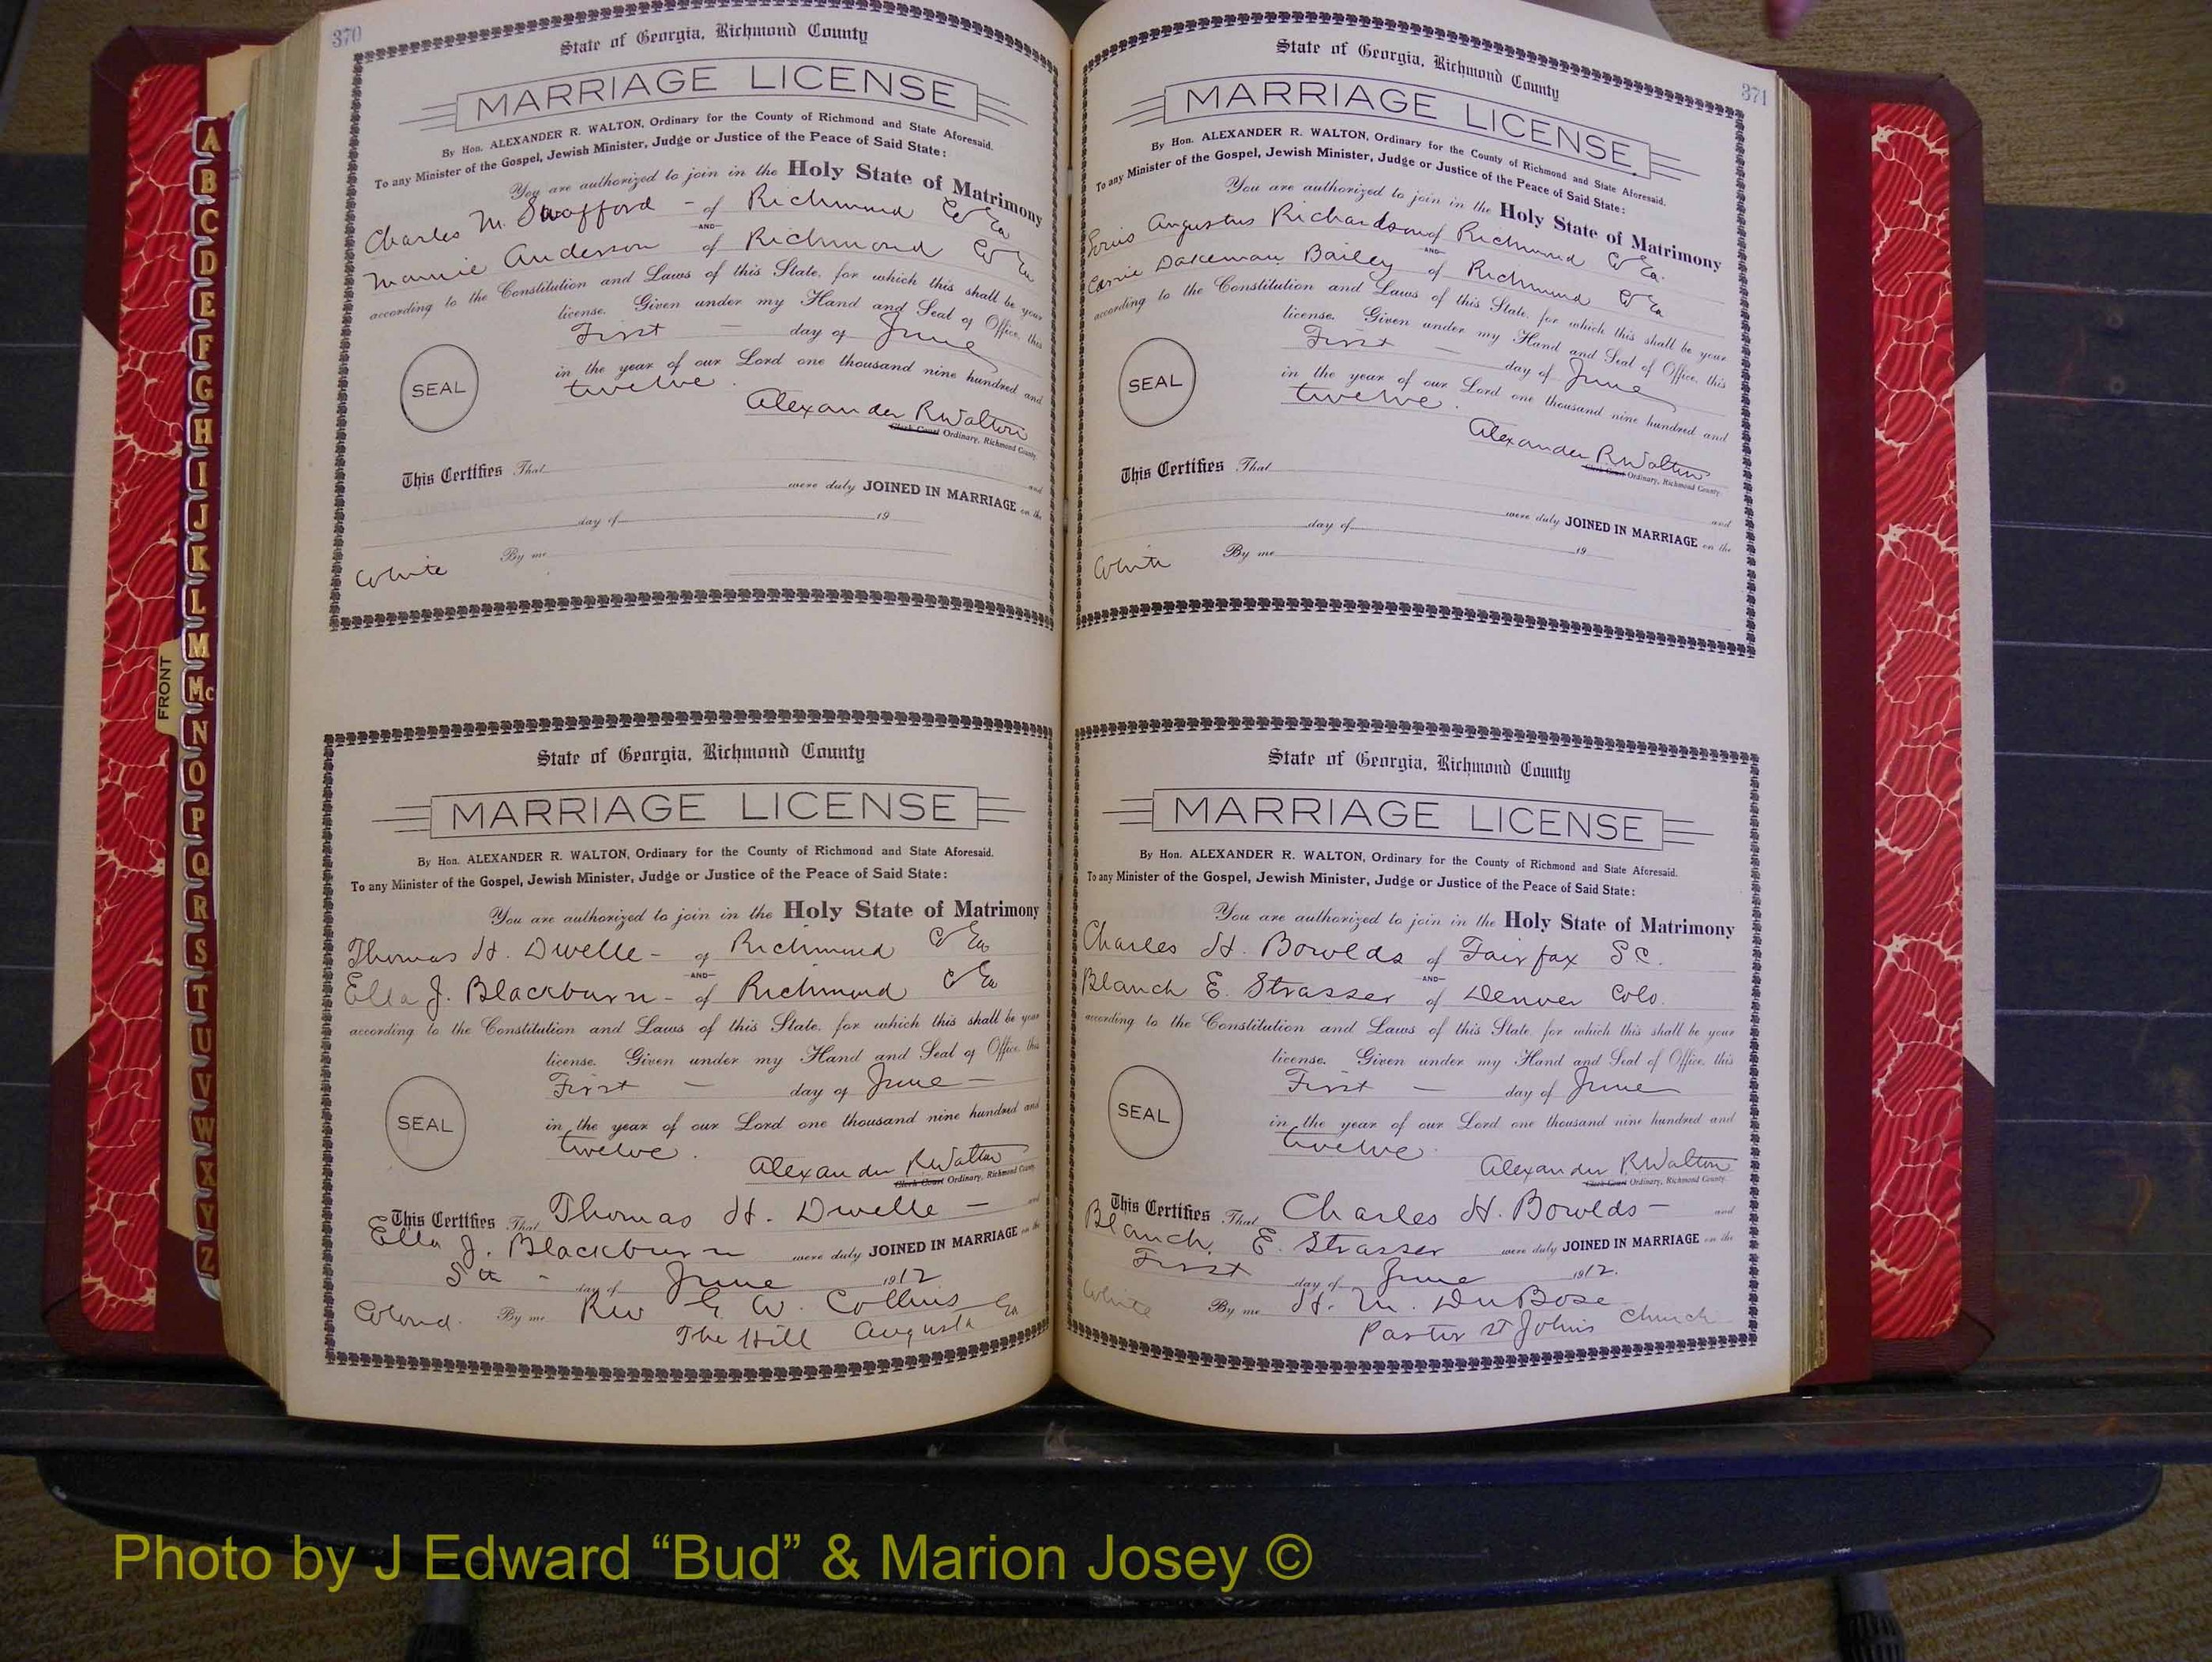 370
State of Georgia, Richmond County
MARRIAGE LICENSE
By Hon. ALEXANDER R. WALTON, Ordinary for the County of Richmond and State Aforesaid.
To any Minister of the Gospel, Jewish Minister, Judge or Justice of the Peace of Said State:
You are authorized to join in the Holy State of Matrimony
Charles M. Swofford - of Richmond Co Ga
AND
Mamie Anderson of Richmond Co Ga
according to the Constitution and Laws of this State, for which this shall be your
license. Given under my Hand and Seal of Office, this
First - day of June
in the year of our Lord one thousand nine hundred and
twelve.
SEAL
Alexander R Walton
Clerk Court Ordinary, Richmond County.
This Certifies That and
were duly JOINED IN MARRIAGE on the
day of 19
White By me
State of Georgia, Richmond County
MARRIAGE LICENSE
By Hon. ALEXANDER R. WALTON, Ordinary for the County of Richmond and State Aforesaid.
To any Minister of the Gospel, Jewish Minister, Judge or Justice of the Peace of Said State:
You are authorized to join in the Holy State of Matrimony
Thomas H. Dwelle - of Richmond C Ga
AND
Ella J. Blackburn - of Richmond C Ga
according to the Constitution and Laws of this State, for which this shall be your
license. Given under my Hand and Seal of Office, this
First - day of June -
in the year of our Lord one thousand nine hundred and
twelve.
SEAL
Alexander R Walton
Clerk Court Ordinary, Richmond County.
This Certifies That Thomas H. Dwelle - and
Ella J. Blackburn were duly JOINED IN MARRIAGE on the
5th - day of June 1912
Colored. By me Rev G. W. Collins Ga
The Hill Augusta
371
State of Georgia, Richmond County
MARRIAGE LICENSE
By Hon. ALEXANDER R. WALTON, Ordinary for the County of Richmond and State Aforesaid.
To any Minister of the Gospel, Jewish Minister, Judge or Justice of the Peace of Said State:
You are authorized to join in the Holy State of Matrimony
Augustus Richardson of Richmond Co Ga.
AND
Carrie Dakeman Bailey of Richmond Co Ga
according to the Constitution and Laws of this State, for which this shall be your
license. Given under my Hand and Seal of Office, this
First - day of June
in the year of our Lord one thousand nine hundred and
twelve.
SEAL
Alexander R Walton
Clerk Court Ordinary, Richmond County.
This Certifies That and
were duly JOINED IN MARRIAGE on the
day of 19
White By me
State of Georgia, Richmond County
MARRIAGE LICENSE
By Hon. ALEXANDER R. WALTON, Ordinary for the County of Richmond and State Aforesaid.
To any Minister of the Gospel, Jewish Minister, Judge or Justice of the Peace of Said State:
You are authorized to join in the Holy State of Matrimony
Charles H. Bowlds of Fairfax S C.
AND
Blanch E. Strasser of Denver Colo.
according to the Constitution and Laws of this State, for which this shall be your
license. Given under my Hand and Seal of Office, this
First - day of June
in the year of our Lord one thousand nine hundred and
twelve.
SEAL
Alexander R Walton
Clerk Court Ordinary, Richmond County.
This Certifies That Charles H. Bowlds - and
Blanch. E. Strasser were duly JOINED IN MARRIAGE on the
First day of June 1912.
White By me H. M. DuBose
Pastor St Johns Church
A
B
C
D
E
F
G
H
I
J
K
L
M
Mc
N
O
P
Q
R
S
T
U
V
W
X
Y
Z
FRONT
Photo by J Edward “Bud” & Marion Josey ©